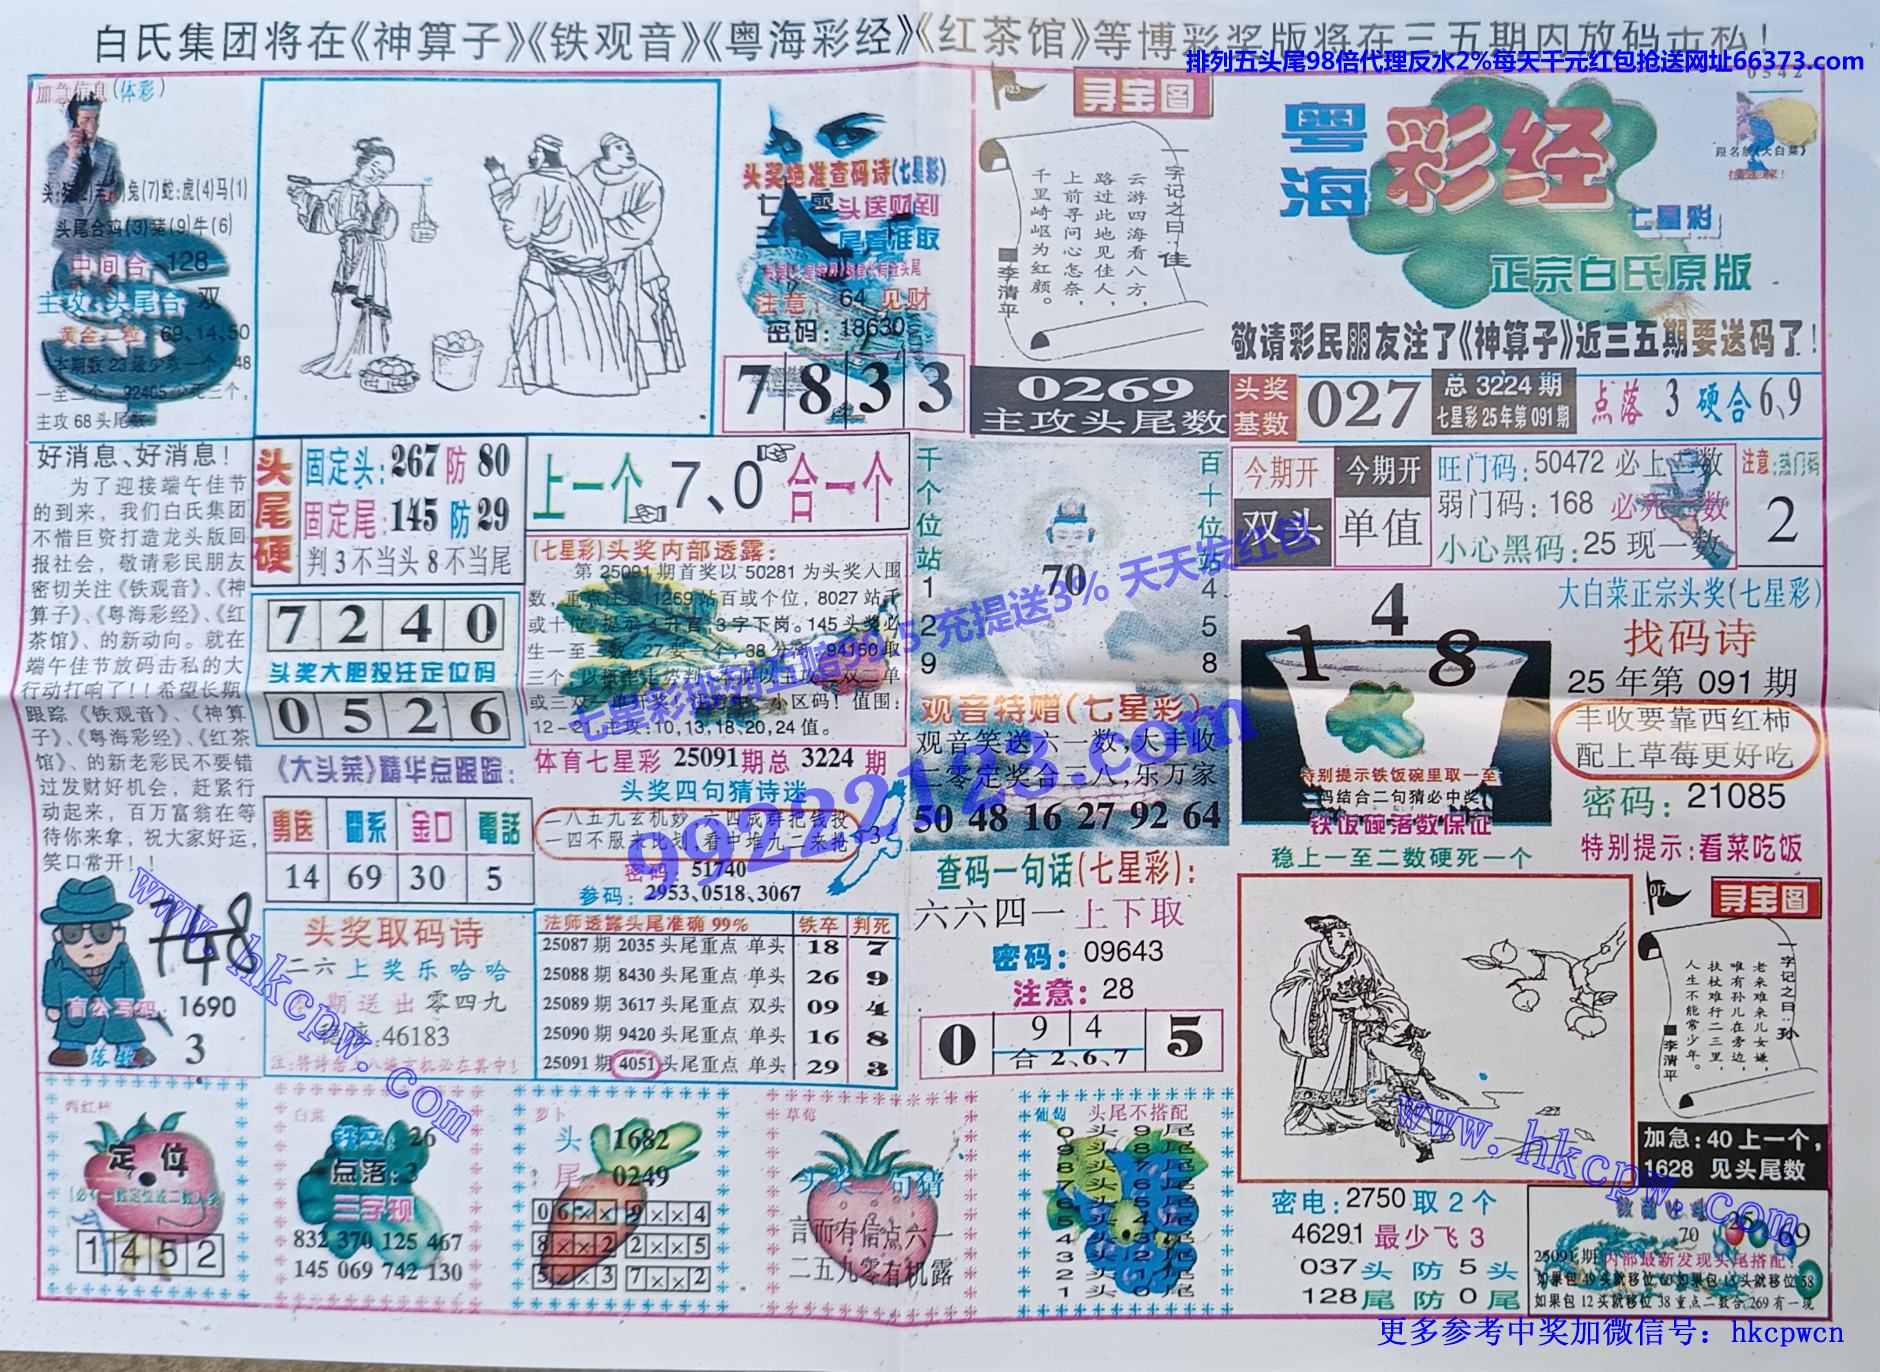 白氏集团将在《神算子》《铁观音》《粤海彩经》《红茶馆》等博彩奖版将在三五期内放码击私！
排列五头尾98倍代理反水2%每天千元红包抢送网址66373.com
加急信息(体彩)
头尾合鸡(3)猪(9)牛(6)
中间合：128
主攻：头尾合 双
黄金二粒：69、14、50
主攻 68 头尾数
头奖绝准查码诗(七星彩)
注意：64 见财
密码：18630
7 8 3 3
寻宝图
一字记之曰：佳
云游四海看八方，
路过此地见佳人，
上前寻问心怎奈，
千里崎岖为红颜。
■李清平
0269
主攻头尾数
粤海彩经
七星彩
正宗白氏原版
跟名版《大白菜》
敬请彩民朋友注了《神算子》近三五期要送码了！
头奖基数 027
总 3224 期
七星彩 25 年第 091 期
点落 3 硬合 6、9
好消息、好消息！
为了迎接端午佳节
的到来，我们白氏集团
不惜巨资打造龙头版回
报社会，敬请彩民朋友
密切关注《铁观音》、《神
算子》、《粤海彩经》、《红
茶馆》、的新动向。就在
端午佳节放码击私的大
行动打响了！！希望长期
跟踪《铁观音》、《神算
子》、《粤海彩经》、《红茶
馆》、的新老彩民不要错
过发财好机会，赶紧行
动起来，百万富翁在等
待你来拿，祝大家好运，
笑口常开！！
头尾硬
固定头：267 防 80
固定尾：145 防 29
判 3 不当头 8 不当尾
上一个 7、0 合一个
7 2 4 0
头奖大胆投注定位码
0 5 2 6
(七星彩)头奖内部透露：
第 25091 期首奖以 50281 为头奖入围
12-2 主攻：10,13,18,20,24 值。
体育七星彩 25091 期总 3224 期
头奖四句猜诗迷
二八五九玄机妙 六四成群把钱投
一四不服来比划 看中堆九二来抢
密码 51740
参码：2953、0518、3067
3
《大头菜》精华点跟踪：
勇送 關系 金口 電話
14 69 30 5
千个位站
1
2
9
百十位站
4
5
8
70
观音特赠(七星彩)
观音笑送六一数，大丰收
二零定奖合三八，乐万家
50 48 16 27 92 64
今期开 双头
今期开 单值
旺门码：50472 必上二数
弱门码：168 必死二数
小心黑码：25 现一数
注意：热门码
2
1 4 8
特别提示铁饭碗里取一至
码结合二句猜必中奖
铁饭碗落数保证
稳上一至二数硬死一个
大白菜正宗头奖(七星彩)
找码诗
25 年第 091 期
丰收要靠西红柿
配上草莓更好吃
密码：21085
特别提示：看菜吃饭
盲公写码：1690
落数 3
头奖取码诗
二六上奖乐哈哈
本期送出零四九
稳座：46183
法师透露头尾准确 99% 铁卒 判死
25087 期 2035 头尾重点 单头 18 7
25088 期 8430 头尾重点 单头 26 9
25089 期 3617 头尾重点 双头 09 4
25090 期 9420 头尾重点 单头 16 8
25091 期 4051 头尾重点 单头 29 3
查码一句话(七星彩)：
六六四一上下取
密码：09643
注意：28
0 9 4 5
合 2、6、7
寻宝图
017
一字记之曰：孙
老来难来儿女嫌，
唯有孙儿在旁边，
扶杖难行二三里，
人生不能常少年。
■李清平
加急：40 上一个，
1628 见头尾数
西红柿
定位
1 4 5 2
白菜
铁卒：26
点落：3
三字现
832 370 125 467
145 069 742 130
萝卜
头 1682
尾 0249
0 6 × × 9 × × 4
8 × × 2 2 × × 5
5 × × 3 7 × × 2
草莓
头奖二句猜
言而有信点六一
二五九零有机露
葡萄 头尾不搭配
0头9尾
9头8尾
8头7尾
7头6尾
6头5尾
5头4尾
4头3尾
3头2尾
2头1尾
1头0尾
密电：2750 取 2 个
46291 最少飞 3
037 头 防 5 头
128 尾 防 0 尾
70 26 69
25091 期内部最新发现头尾搭配！
如果包 49 头就移位 60 如果包 13 头就移位 58
如果包 12 头就移位 38 重点二数合，269 有一现
七星彩排列五赔99.5 充提送3% 天天发红包
99222123.com
www.hkcpw.com
www.hkcpw.com
更多参考中奖加微信号：hkcpwcn